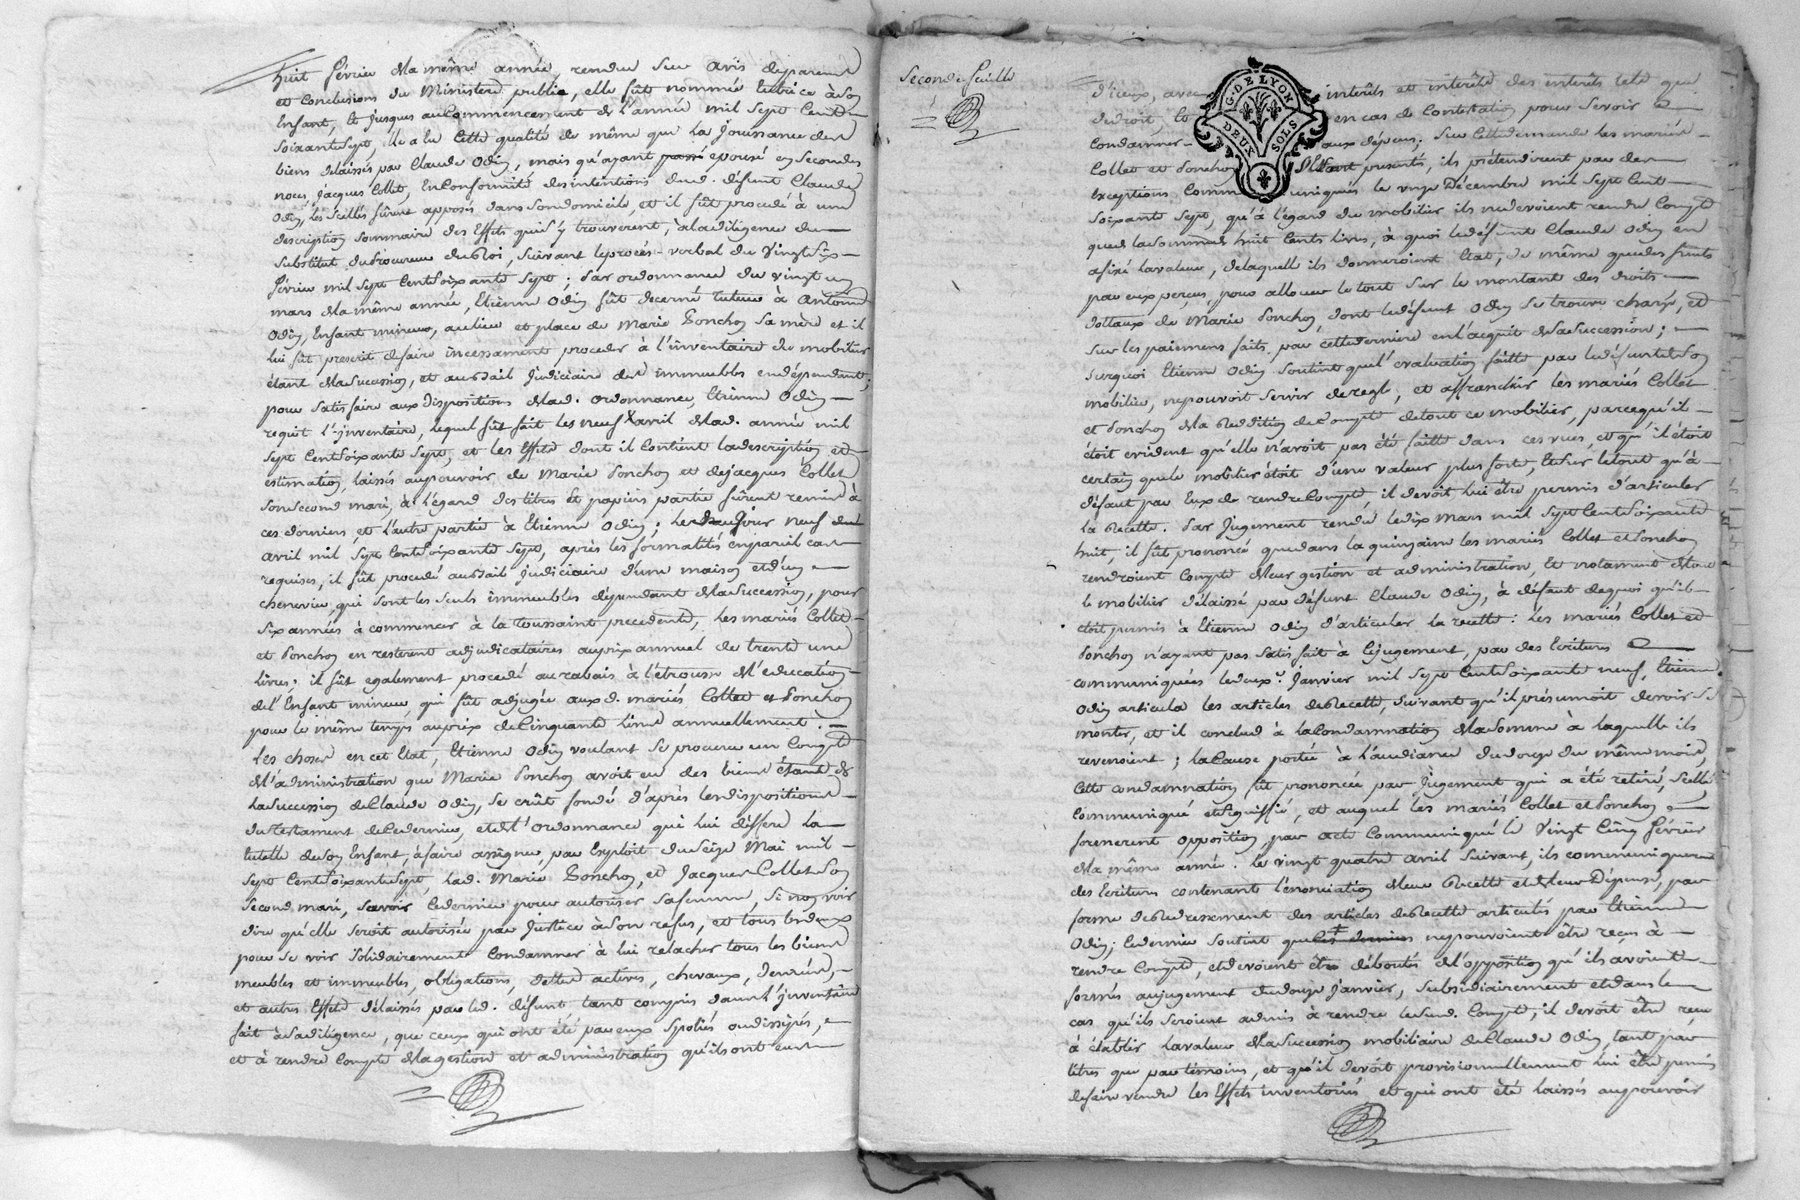 huit février de la même année rendue sur avis de parents
et conclusions du Ministère public, elle fût nommée tutrice à son
enfant, et jusques au Commencement de l'année mil sept Cent
soixante sept, elle a eu Cette qualité de même que la Jouissance des
biens délaissés par Claude Odin, mais qu'ayant passé épousé en secondes
noces Jacques Collet, en Conformité des intentions dud. défunt Claude
Odin, les scellés fûrent apposés dans son domicile, et il fût procedé à une
description sommaire des Effets qui s'y trouverent, à la diligence du
substitut du Procureur du Roi, suivant le procès-verbal du vingt six
février mil sept Cent soixante sept; Par ordonnance du vingt un
mars de la même année, Etienne Odin fût decerné tuteur à Antoine
Odin, Enfant mineur, au lieu et place de Marie Ponchon sa mère et il
lui fût prescrit de faire incessament proceder à l'inventaire du mobilier
étant de la succession, et au bail Judiciaire des immeubles en dépendant;
pour satisfaire aux dispositions de lad. ordonnance, Etienne Odin
requit l'inventaire, lequel fût fait les neuf avril de lad. année mil
sept Cent soixante sept, et les Effets dont il Contient la description et
estimation, laissés au pouvoir de Marie Ponchon et de Jacques Collet
son second mari, à l'égard des titres et papiers partie fûrent remis à
ces derniers et l'autre partie à Etienne Odin; Le Jour neuf
avril mil sept Cent soixante sept, après les formalités en pareil cas
requises, il fût procedé au bail judiciaire d'une maison et d'un
chenevier, qui sont les seuls immeubles dépendant de la succession, pour
six années à commencer à la toussaint precedente, les mariés Collet
et Ponchon en resterent adjudicataires au prix annuel de trente une
livres; il fût egalement procedé au rabais à l'étrousse de l'education
de l'Enfant mineur, qui fût adjugée aux d. mariés Collet et Ponchon
pour le même temps au prix de Cinquante livres annuellement.
Les choses en cet Etat, Etienne Odin voulant se procurer un Compte
de l'administration que Marie Ponchon avoit eu des biens étants de
la succession de Claude Odin, se crût fondé d'après les dispositions
du testament de Ce dernier, et de l'ordonnance qui lui differe la
tutelle de son Enfant, à faire assigner, par Exploit du seize Mai mil
sept Cent soixante sept, lad. Marie Ponchon, et Jacques Collet son
second mari, savoir Ce dernier pour autoriser sa femme, si non voir
dire qu'elle seroit autorisée par Justice à son refus, et tous les deux
pour se voir solidairement Condamner à lui relacher tous les biens
meubles et immeubles, obligations, dettes actives, chevaux, denrées,
et autres Effets délaissés par led. défunt tant compris dans l'inventaire
fait à sa diligence, que ceux qui ont été par eux spoliés ou dissipés,
et à rendre Compte de la gestion et administration qu'ils ont eue
Seconde feuille
d'iceux, avec interêts et interêts des interêts tels que
de droit, et en cas de Contestation pour se voir
condamner aux dépens; sur Cette demande les mariés
Collet et Ponchon s'étant presentés, ils prétendirent par des
exceptions Communiqués le vingt Décembre mil sept Cent
soixante sept, qu'à l'égard du mobilier ils ne devoient rendre Compte
que de la somme de huit Cents livres, à quoi le défunt Claude Odin en
a fixé la valeur, de laquelle ils donneroient Etat, de même que des fruits
par eux perçus, pour allouer le tout sur le montant des droits
dottaux de Marie Ponchon, dont le défunt Odin se trouve chargé, et
sur les paiemens faits par cette derniere en l'acquit de la succession;
surquoi Etienne Odin soutint que l'evaluation faitte par le défunt de son
mobilier, ne pouvoit servir de regle, et affranchir les mariés Collet
et Ponchon de la Reddition de Compte de tout ce mobilier, parcequ'il
étoit evident qu'elle n'avoit pas été faitte dans ces vues, et qu'il étoit
certain que le mobilier étoit d'une valeur plus forte, et sur le tout qu'à
défaut par eux de rendre Compte, il devoit lui être permis d'articuler
la Recette. Par Jugement rendu le dix Mars mil sept Cent soixante
huit, il fût prononcé que dans la quinzaine les mariés Collet et Ponchon
rendroient Compte de leur gestion et administration, et notament de tout
le mobilier délaissé par défunt Claude Odin, à défaut de quoi qu'il
étoit permis à Etienne Odin d'articuler la recette: Les mariés Collet et
Ponchon n'ayant pas satisfait à ce jugement, par des Ecritures
communiquées le deux Janvier mil sept Cent soixante neuf, Etienne
Odin articula les articles de Recette, suivant qu'il présumoit devoir se
monter, et il conclud à la Condamnation de la somme à laquelle ils
revenoient; la Cause portée à l'audiance du douze du même mois,
Cette condamnation fût prononcée par Jugement qui a été retiré, scellé
Communiqué et signiffié, et auquel les mariés Collet et Ponchon
formerent opposition, par acte Communiqué le Vingt Cinq février
de la même année. Le vingt quatre avril suivant, ils communiquerent
des Ecritures contenant l'énonciation de leur Recette et de leur Dépense, par
forme de Redressement des articles de Recette articulés par Etienne
Odin; Ce dernier soutint que ces derniers ne pouvoient être reçus à
rendre Compte, et devoient être déboutés de l'opposition qu'ils avoient
formés au jugement du douze Janvier, subsidiairement et dans le
cas qu'ils seroient admis à rendre le susd. Compte, il devoit être reçu
à établir la valeur de la succession mobiliaire de Claude Odin, tant par
titres que par témoins, et qu'il devoit provisionnellement lui être permis
de faire vendre les Effets inventoriés et qui ont été laissés au pouvoir
G. DE LYON
DEUX SOLS